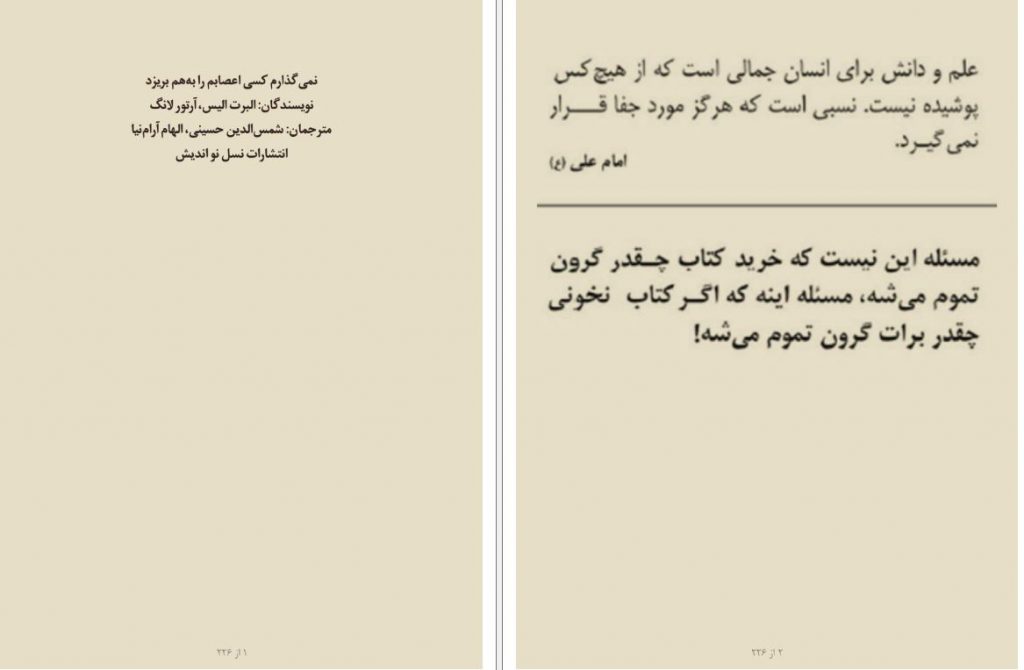 نمی‌گذارم کسی اعصابم را به‌هم بریزد
نویسندگان: البرت الیس، آرتور لانگ
مترجمان: شمس‌الدین حسینی، الهام آرام‌نیا
انتشارات نسل نواندیش
۱ از ۲۲۶
علم و دانش برای انسان جمالی است که از هیچ‌کس
پوشیده نیست. نسبی است که هرگز مورد جفا قـــرار
نمی‌گیـرد.
امام علی (ع)
مسئله این نیست که خرید کتاب چـقدر گرون
تموم می‌شه، مسئله اینه که اگـر کتاب نخونی
چقدر برات گرون تموم می‌شه!
۲ از ۲۲۶